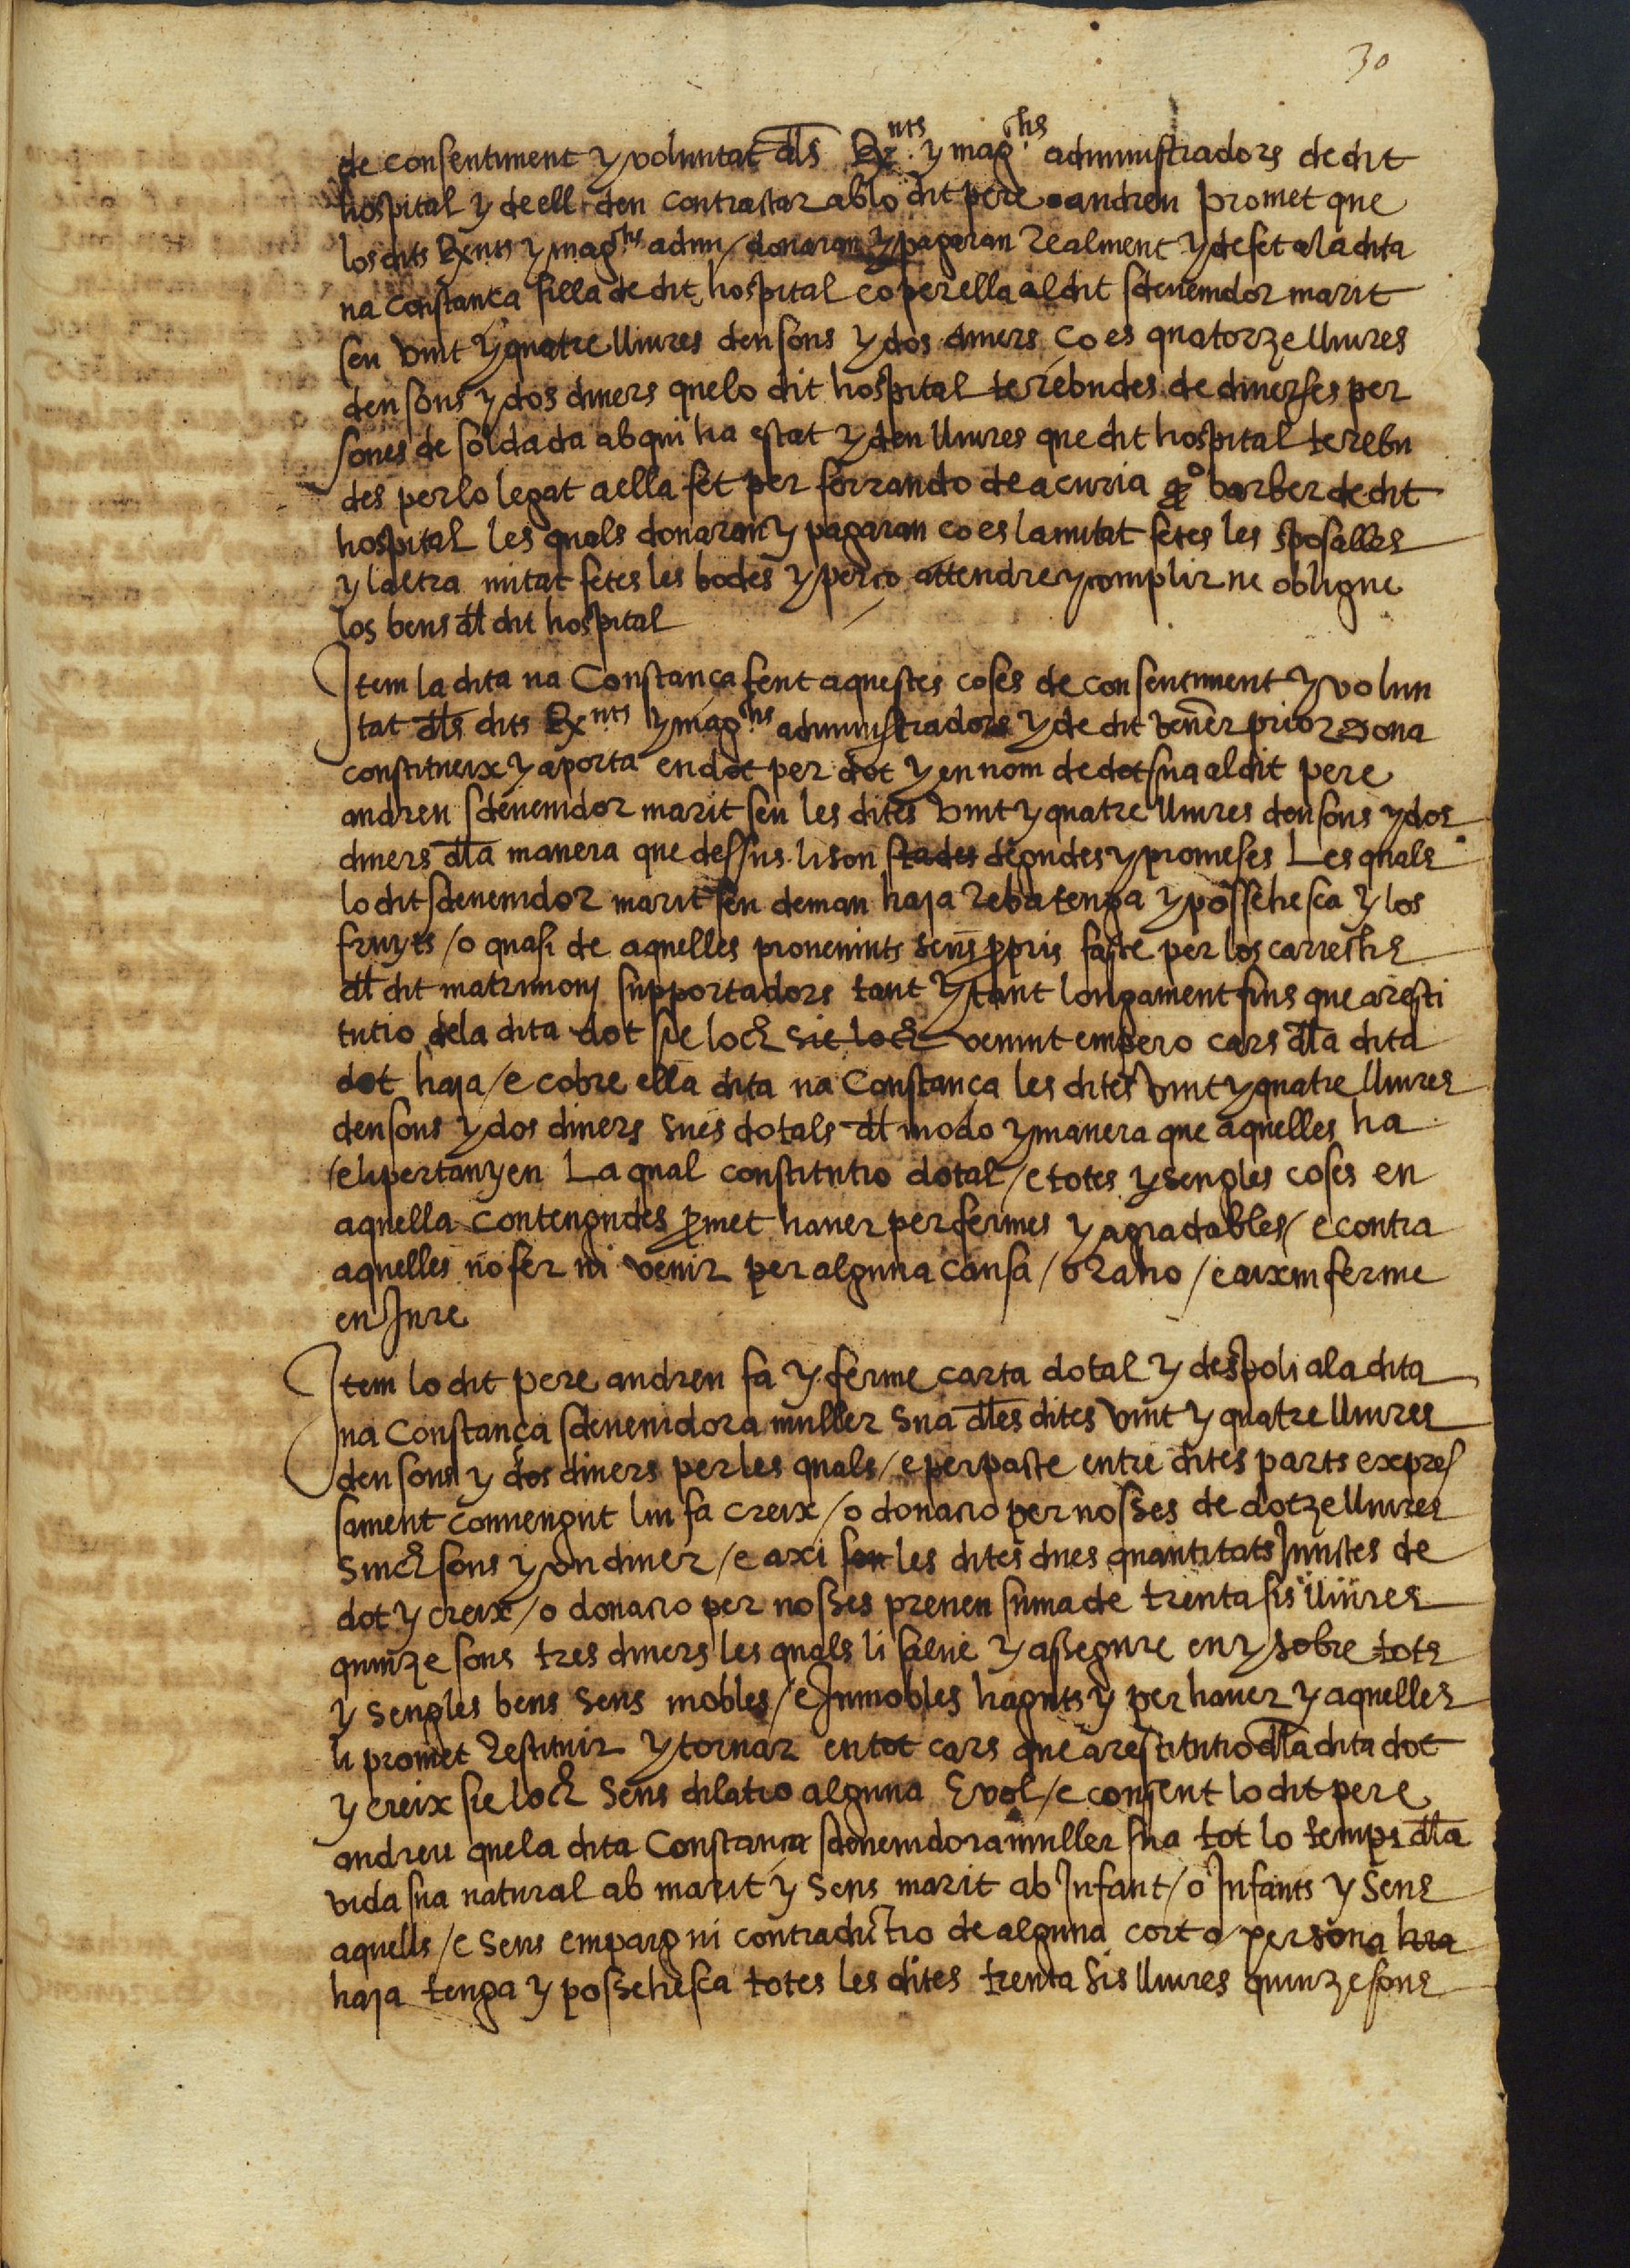 30
de consentiment y voluntat dls Rx.nts y mag.chs administradors de dit
hospital y de ell den contractar ab lo dit pere andreu promet que
los dits Rxnts y mag.chs admi/ donaran y pagaran realment y de fet a la dita
na Constança filla de dit hospital eo per ella al dit sdevenidor marit
seu vint y quatre lliures deu sous y dos diners ço es quatorze lliures
deu sous y dos diners que lo dit hospital te rebudes de diverses per
sones de soldada ab qui ha estat y deu lliures que dit hospital te rebu
des per lo legat a ella fet per ferrando de acuria qº barber de dit
hospital les quals donaran y pagaran ço es la mitat fetes les sposalles
y laltra mitat fetes les bodes y per ço attendre y complir ne obligue
los bens dl dit hospital
Item la dita na Constança fent aquestes coses de consentiment y volun
tat dls dits Rx.nts y mag.chs administradors y de dit vener prior dona
constitueix y aporta en dot per dot y en nom de dot sua al dit pere
andreu sdevenidor marit seu les dites vint y quatre lliures deu sous y dos
diners dla manera que dessus li son stades degudes y promeses Les quals
lo dit sdevenidor marit seu deman haja reba tenga y possehesca y los
fruyts/o quasi de aquelles provenints sens ppris faste per los carrechs
dl dit matrimonj supportadors tant y tant longament fins que a resti
tutio de la dita dot sie loch sie loch venint empero cars dla dita
dot haja/e cobre ella dita na Constança les dites vint y quatre lliures
deu sous y dos diners sues dotals dl modo y manera que aquelles ha
/e li pertanyen La qual constitutio dotal/e totes y sengles coses en
aquella contengudes pmet haver per fermes y agradables/e contra
aquelles no fer ni venir per alguna causa/o raho/e aixin ferme
en Jure
Item lo dit pere andreu fa y ferme carta dotal y despoli a la dita
na Constança sdevenidora muller sua dles dites vint y quatre lliures
deu sous y dos diners per les quals/e per pacte entre dites parts expres
sament convengut lin fa creix/o donatio per nosses de dotze lliures
sinch sous y un diner/e axi son les dites dues quantitats Junctes de
dot y creix/o donatio per nosses prenen suma de trenta sis lliures
quinze sous tres diners les quals li salve y assegure en y sobre tots
y sengles bens seus mobles/e Inmobles haguts y per haver y aquelles
li promet restituir y tornar en tot cars que a restitutio dla dita dot
y creix sie loch sens dilatio alguna E vol/e consent lo dit pere
andreu que la dita Constança sdevenidora muller sua tot lo temps dla
vida sua natural ab marit y sens marit ab Infant/o Infants y sens
aquells/e sens emparg ni contradictio de alguna cort o persona hra
haja tenga y possehesca totes les dites trenta sis lliures quinze sous